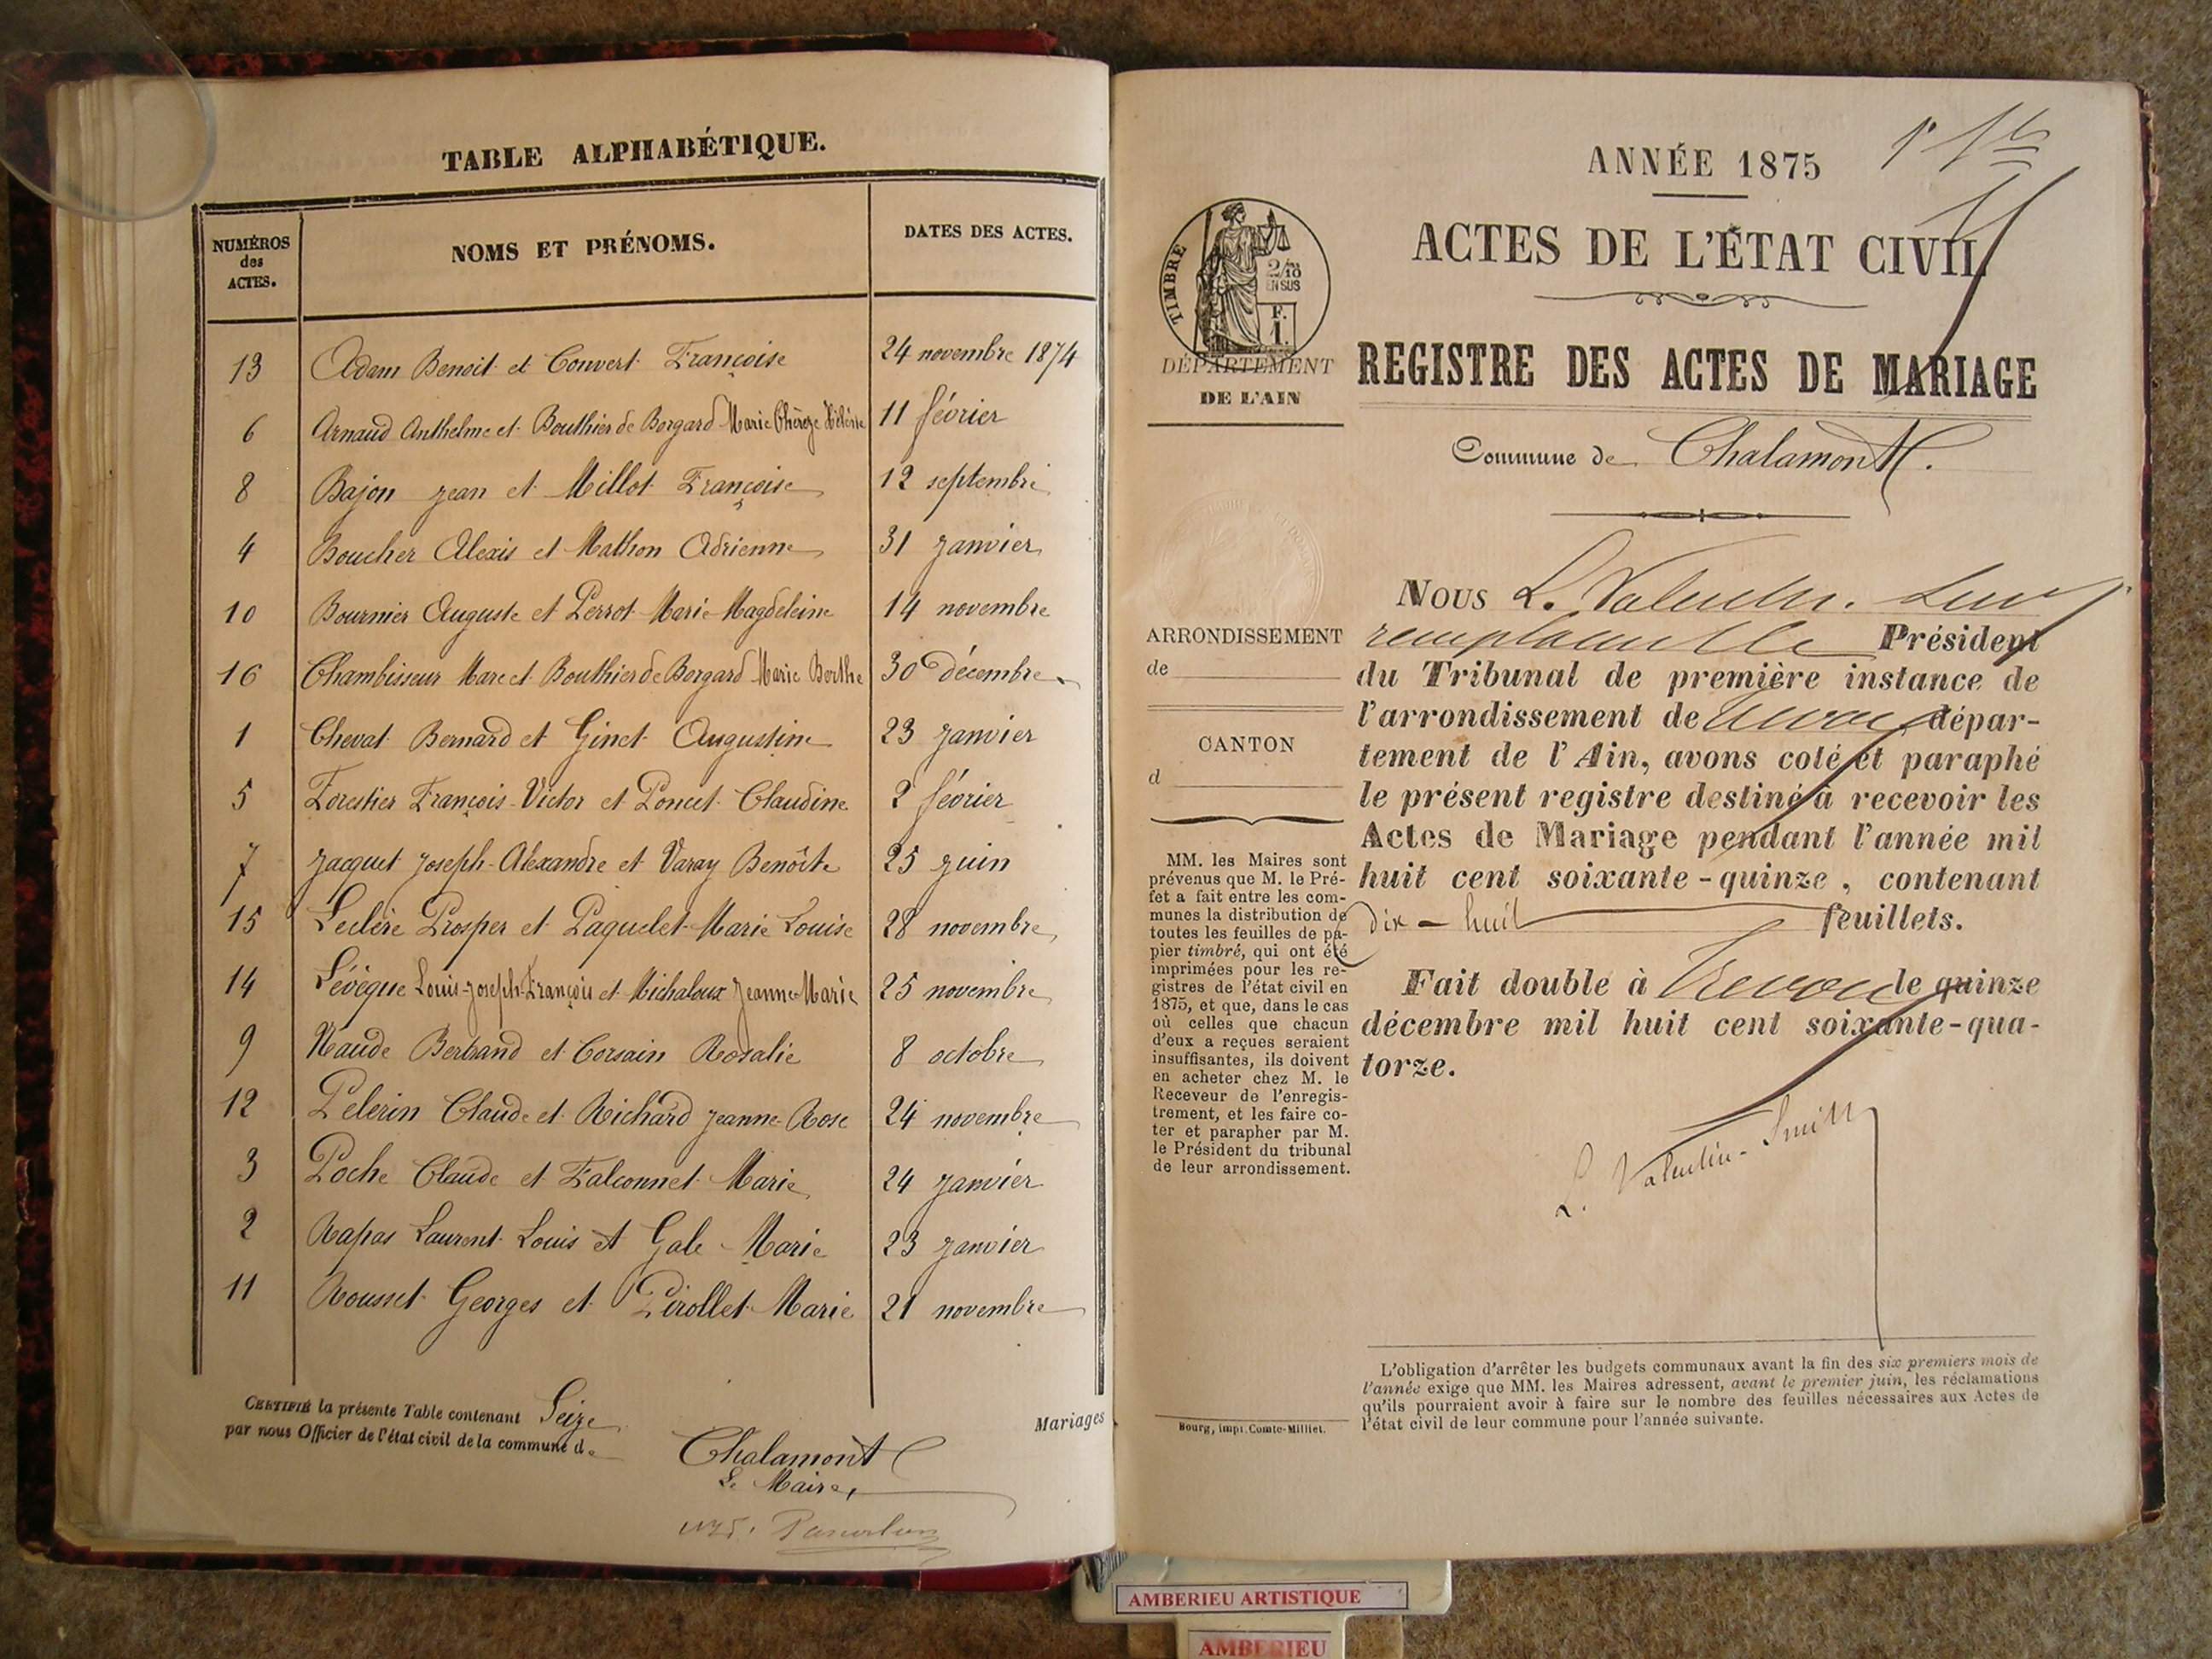 TABLE ALPHABÉTIQUE.
NUMÉROS des ACTES. NOMS ET PRÉNOMS. DATES DES ACTES.
13 Adam Benoit et Convert Françoise 24 novembre 1874
6 Arnaud Anthelme et Bouthier de Borgard Marie Thérèze Hélène 11 février
8 Bajon Jean et Millot Françoise 12 septembre
4 Boucher Alexis et Mathon Adrienne 31 janvier
10 Bournier Auguste et Perrot Marie Magdeleine 14 novembre
16 Chambisseur Marc et Bouthier de Borgard Marie Berthe 30 décembre
1 Chevat Bernard et Ginet Augustine 23 janvier
5 Forestier François-Victor et Poncet Claudine 2 février
7 Jacquet Joseph-Alexandre et Varay Benoîte 25 juin
15 Leclère Prosper et Paquelet Marie Louise 28 novembre
14 Lévèque Louis-Joseph-François et Michaloux Jeanne-Marie 25 novembre
9 Naude Bertrand et Corsain Rosalie 8 octobre
12 Pelerin Claude et Richard Jeanne-Rose 24 novembre
3 Poche Claude et Falconnet Marie 24 janvier
2 Rapas Laurent Louis et Gale Marie 23 janvier
11 Rousset Georges et Pirollet Marie 21 novembre
CERTIFIÉ la présente Table contenant Seize Mariages
par nous Officier de l'état civil de la commune de Chalamont
Le Maire,
ANNÉE 1875
ACTES DE L'ÉTAT CIVIL
REGISTRE DES ACTES DE MARIAGE
Commune de Chalamont.
TIMBRE
2/10
EN SUS
F.
1.
DÉPARTEMENT
DE L'AIN
ARRONDISSEMENT
de
CANTON
d
MM. les Maires sont
prévenus que M. le Pré-
fet a fait entre les com-
munes la distribution de
toutes les feuilles de pa-
pier timbré, qui ont été
imprimées pour les re-
gistres de l'état civil en
1875, et que, dans le cas
où celles que chacun
d'eux a reçues seraient
insuffisantes, ils doivent
en acheter chez M. le
Receveur de l'enregis-
trement, et les faire co-
ter et parapher par M.
le Président du tribunal
de leur arrondissement.
Bourg, impr. Comte-Milliet.
NOUS L. Valentin
remplaçant le Président
du Tribunal de première instance de
l'arrondissement de Trévoux dépar-
tement de l'Ain, avons coté et paraphé
le présent registre destiné à recevoir les
Actes de Mariage pendant l'année mil
huit cent soixante-quinze, contenant
dix-huit feuillets.
Fait double à Trévoux le quinze
décembre mil huit cent soixante-qua-
torze.
L. Valentin-Smith
L'obligation d'arrêter les budgets communaux avant la fin des six premiers mois de
l'année exige que MM. les Maires adressent, avant le premier juin, les réclamations
qu'ils pourraient avoir à faire sur le nombre des feuilles nécessaires aux Actes de
l'état civil de leur commune pour l'année suivante.
AMBERIEU ARTISTIQUE
AMBERIEU